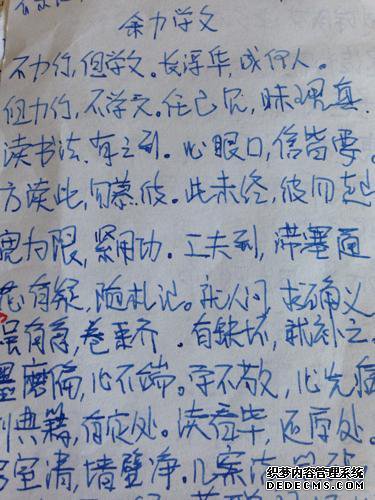 余力学文
不力行,但学文。长浮华,成何人。
但力行,不学文。任己见,昧理真。
读书法,有三到。心眼口,信皆要。
方读此,勿慕彼。此未终,彼勿起
宽为限,紧用功。工夫到,滞塞通
有疑,随札记。就人问,求确义
角,卷 齐。有缺坏,就补之。
墨磨偏,心不端。字不敬,心先病
列典籍,有定处。读看毕,还原处。
室清,墙壁净。几案洁
织梦内容管理系统
DEDECMS.COM